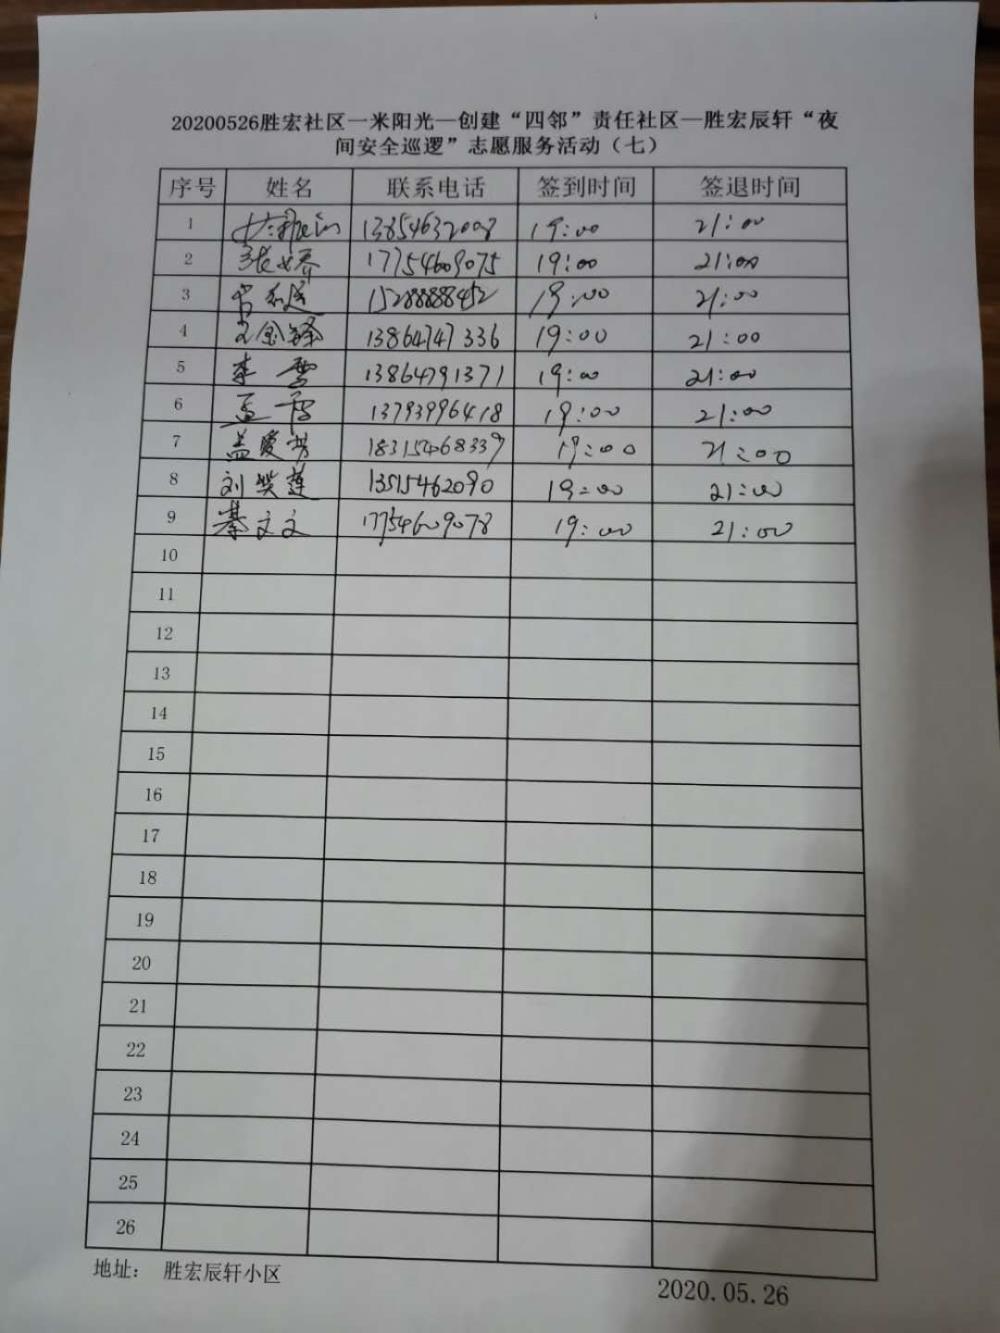 20200526胜宏社区一米阳光—创建“四邻”责任社区—胜宏辰轩“夜
间安全巡逻”志愿服务活动（七）
序号 姓名 联系电话 签到时间 签退时间
1 13854632008 19:00 21:00
2 张娇 17754609075 19:00 21:00
3 15288888452 19:00 21:00
4 王金铎 13864747336 19:00 21:00
5 李雪 13864791371 19:00 21:00
6 孟雪 13793996418 19:00 21:00
7 盖爱芳 18315468339 19:00 21:00
8 刘笑莲 13515462090 19:00 21:00
9 綦文文 17754609078 19:00 21:00
10
11
12
13
14
15
16
17
18
19
20
21
22
23
24
25
26
地址： 胜宏辰轩小区
2020.05.26